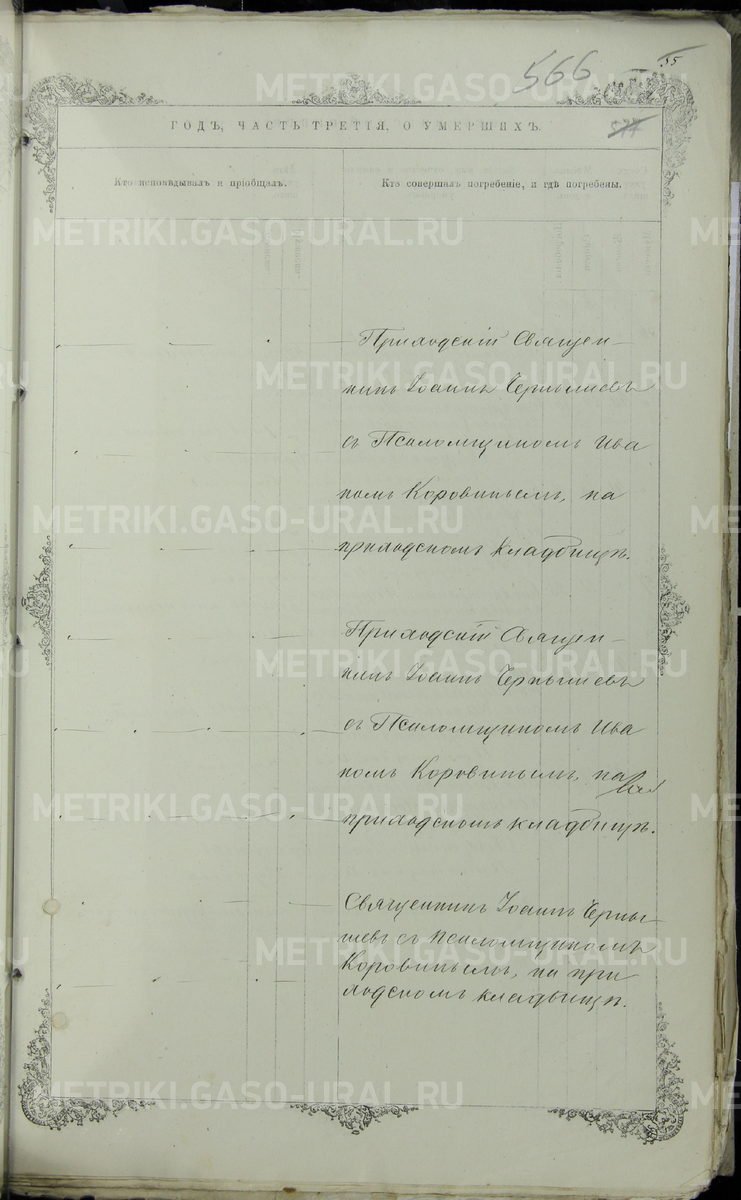 566
55
577
ГОДЪ, ЧАСТЬ ТРЕТІЯ, О УМЕРШИХЪ.
Кто исповѣдывалъ и пріобщалъ.
Кто совершалъ погребеніе, и гдѣ погребены.
Приходскій Священ-
никъ Іоаннъ Чернышевъ
съ Псаломщикомъ Ива
номъ Коровинымъ, на
приходскомъ кладбищѣ.
Приходскій Священ-
никъ Іоаннъ Чернышевъ
съ Псаломщикомъ Ива
номъ Коровинымъ, на
приходскомъ кладбищѣ.
Священникъ Іоаннъ Черны-
шевъ съ псаломщикомъ
Коровинымъ, на при
ходскомъ кладбищѣ.
METRIKI.GASO-URAL.RU